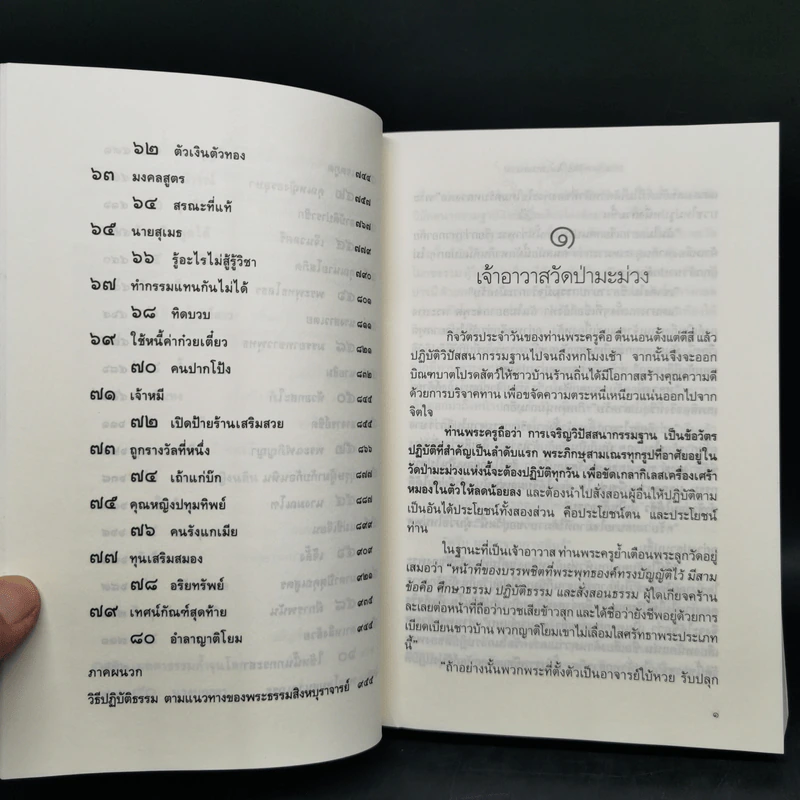 ๖๒ ตัวเงินตัวทอง ๗๔๔
๖๓ มงคลสูตร ๗๕๗
๖๔ สรณะที่แท้ ๗๖๗
๖๕ นายสุเมธ ๗๗๙
๖๖ รู้อะไรไม่สู้รู้วิชา ๗๙๐
๖๗ ทำกรรมแทนกันไม่ได้ ๘๐๑
๖๘ ทิดบวบ ๘๑๑
๖๙ ใช้หนี้ค่าก๋วยเตี๋ยว ๘๒๑
๗๐ คนปากโป้ง ๘๓๒
๗๑ เจ้าหมี ๘๔๔
๗๒ เปิดป้ายร้านเสริมสวย ๘๕๕
๗๓ ถูกรางวัลที่หนึ่ง ๘๖๖
๗๔ เถ้าแก่บั๊ก ๘๗๗
๗๕ คุณหญิงปทุมทิพย์ ๘๘๗
๗๖ คนรังแกเมีย ๘๙๙
๗๗ ทุนเสริมสมอง ๙๐๙
๗๘ อริยทรัพย์ ๙๒๑
๗๙ เทศน์กัณฑ์สุดท้าย ๙๓๕
๘๐ อำลาญาติโยม ๙๔๔
ภาคผนวก
วิธีปฏิบัติธรรม ตามแนวทางของพระธรรมสิงหบุราจารย์ ๙๕๕
๑
เจ้าอาวาสวัดป่ามะม่วง
กิจวัตรประจำวันของท่านพระครูคือ ตื่นนอนตั้งแต่ตีสี่ แล้ว
ปฏิบัติวิปัสสนากรรมฐานไปจนถึงหกโมงเช้า จากนั้นจึงจะออก
บิณฑบาตโปรดสัตว์ให้ชาวบ้านร้านถิ่นได้มีโอกาสสร้างคุณความดี
ด้วยการบริจาคทาน เพื่อขจัดความตระหนี่เหนียวแน่นออกไปจาก
จิตใจ
ท่านพระครูถือว่า การเจริญวิปัสสนากรรมฐาน เป็นข้อวัตร
ปฏิบัติที่สำคัญเป็นลำดับแรก พระภิกษุสามเณรทุกรูปที่อาศัยอยู่ใน
วัดป่ามะม่วงแห่งนี้จะต้องปฏิบัติทุกวัน เพื่อขัดเกลากิเลสเครื่องเศร้า
หมองในตัวให้ลดน้อยลง และต้องนำไปสั่งสอนผู้อื่นให้ปฏิบัติตาม
เป็นอันได้ประโยชน์ทั้งสองส่วน คือประโยชน์ตน และประโยชน์
ท่าน
ในฐานะที่เป็นเจ้าอาวาส ท่านพระครูย้ำเตือนพระลูกวัดอยู่
เสมอว่า "หน้าที่ของบรรพชิตที่พระพุทธองค์ทรงบัญญัติไว้ มีสาม
ข้อคือ ศึกษาธรรม ปฏิบัติธรรม และสั่งสอนธรรม ผู้ใดเกียจคร้าน
ละเลยต่อหน้าที่ถือว่าบวชเสียข้าวสุก และได้ชื่อว่ายังชีพอยู่ด้วยการ
เบียดเบียนชาวบ้าน พวกญาติโยมเขาไม่เลื่อมใสศรัทธาพระประเภท
นี้"
"ถ้าอย่างนั้นพวกพระที่ตั้งตัวเป็นอาจารย์ใบ้หวย รับปลุก
๑